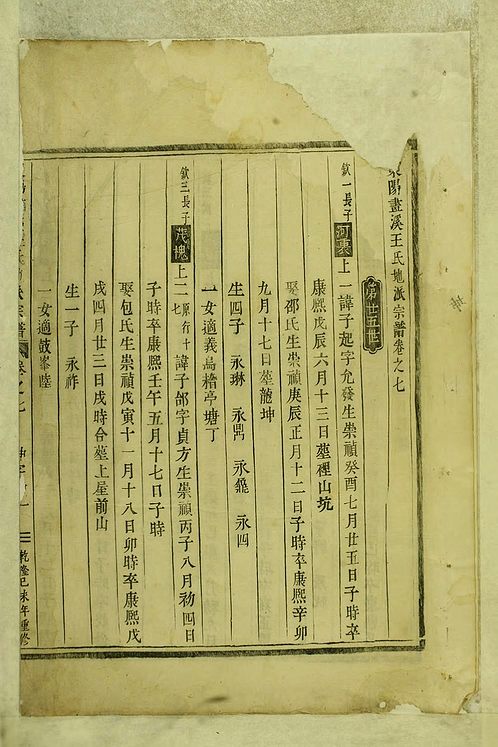 陽畫溪王氏地派宗譜卷之七
第廿五世
欽一長子 河東 上一諱子起字允發生崇禎癸酉七月廿五日子時卒
康熙戊辰六月十三日塟裡山坑
娶邵氏生崇禎庚辰正月十二日子時卒康熙辛卯
九月十七日塟龍坤
生四子 永琳 永鼎 永 永四
一女適義烏檜亭塘丁
欽三長子 茂槐 上二 原行十七 諱子字貞方生崇禎丙子八月初四日
子時卒康熙壬午五月十七日子時
娶包氏生崇禎戊寅十一月十八日卯時卒康熙戊
戌四月廿三日戌時合塟上屋前山
生一子 永祚
一女適鼓峯陸
宗譜 卷之七 乾隆己未年重修